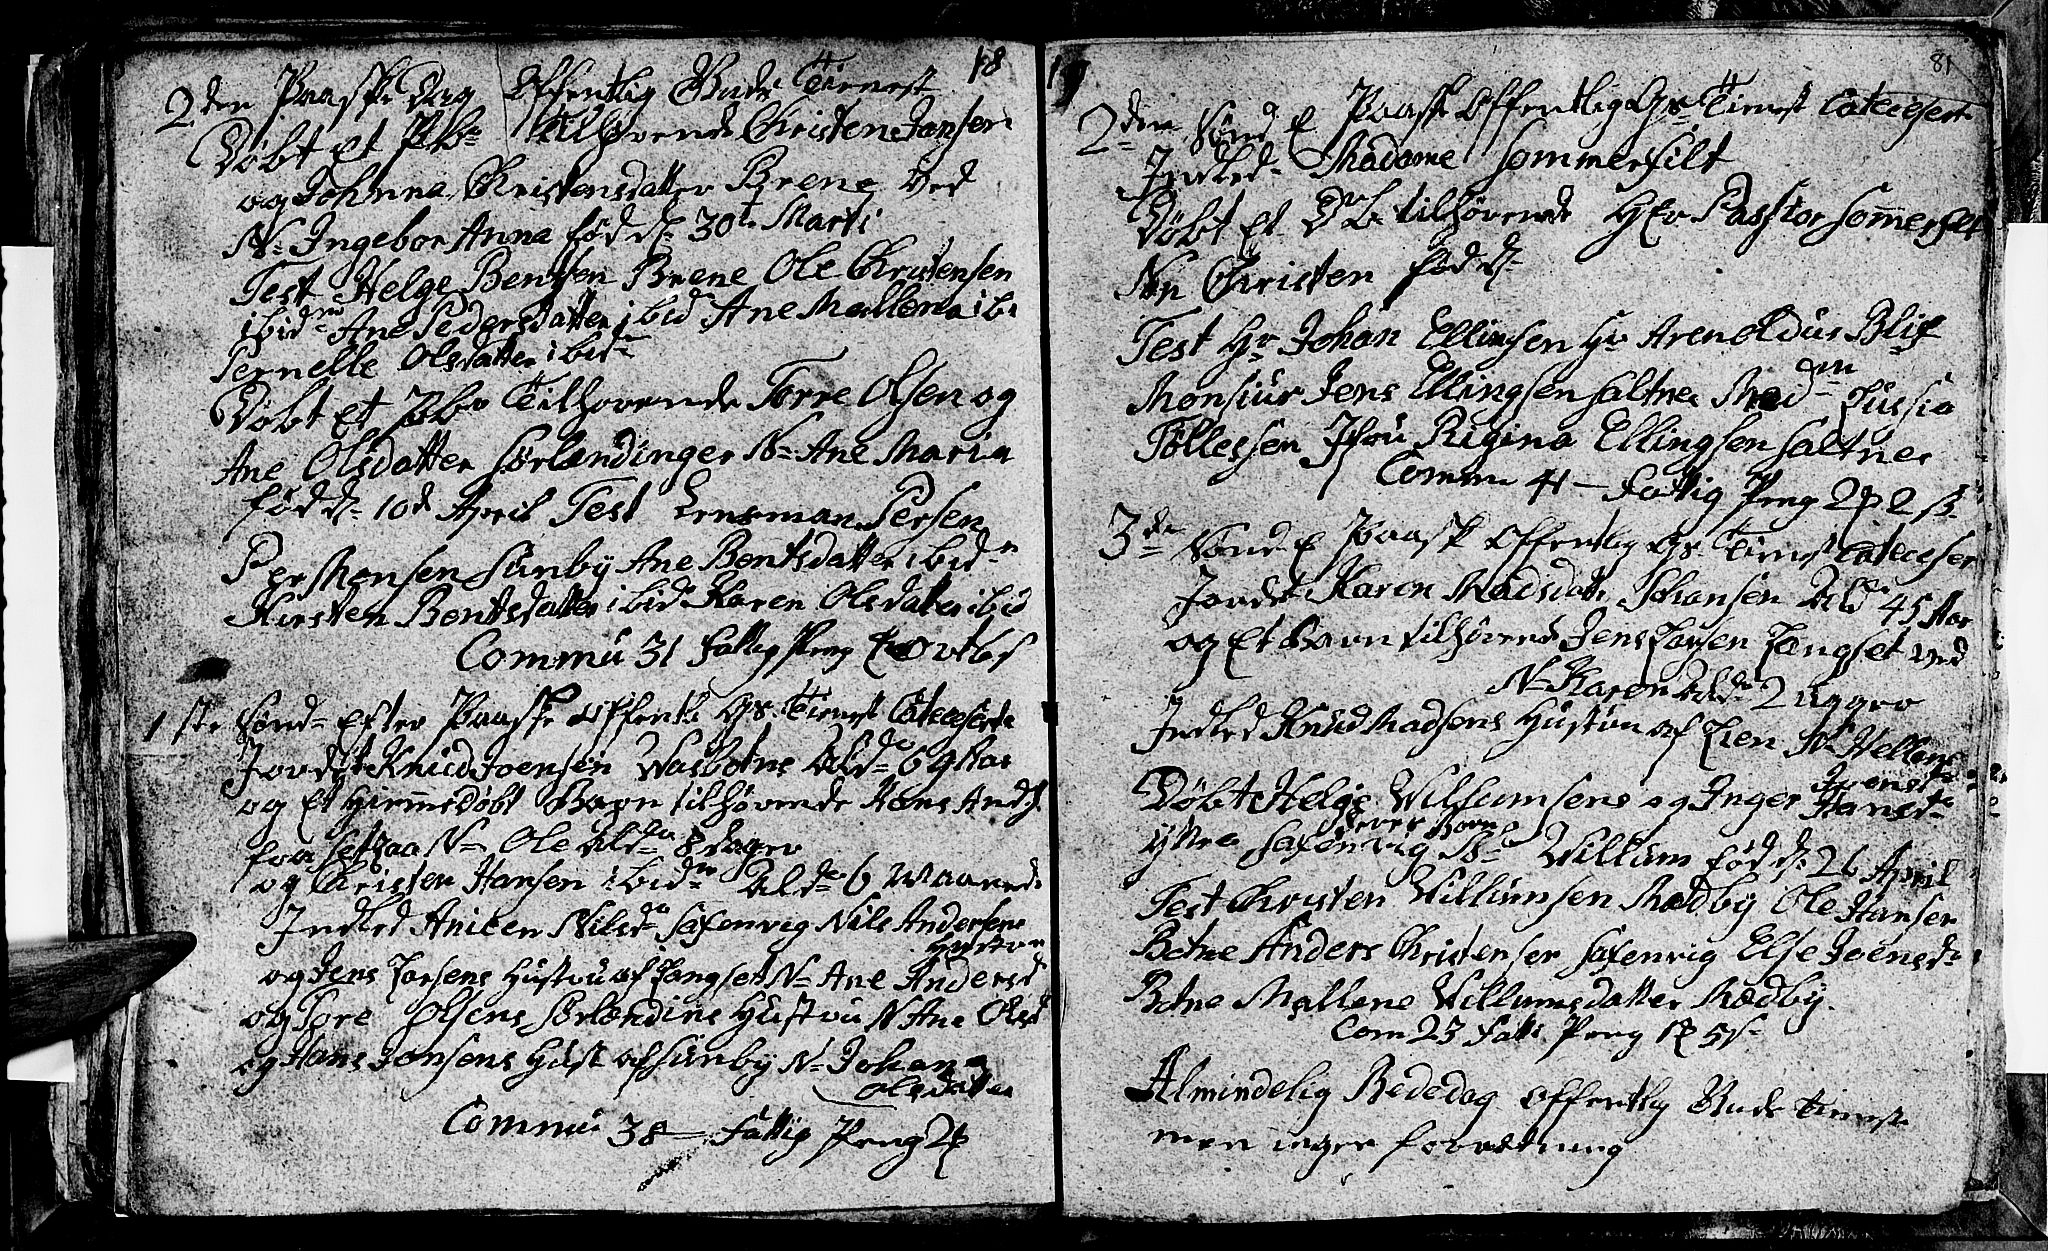 18
2den Paaske Dag Offentlig Guds Tienest
Døbt Et Pb tilhørende Christen Jansen
og Johnna Christensdatter Brene ved
N- Ingebor Anna fød d- 30te Marti
Test Helge Bentsen Brene Ole Christensen
ibidm Ane Pedersdatter ibid Ane Mallena ibi
Pernelle Olsdatter ibid
Døbt Et Pb Tilhørende Torre Olsen og
Ane Olsdatter sørlændinger N- Ane Maria
fød d- 10d April Test Persen
Per Monsen sunby Ane Bentsdatter ibid-
Kirsten Bentsdatter ibid Karen Olsdatter ibid
Commu 31 fattig Peng
1ste Sønd- Efter Paaske offentl Gs. Tienest Catecisert
Jordet Knud Joensen Wasbotne Ald- 69 Aar
og Et Hiemmedøbt Barn tilhørende Hans And
N- Ole Ald- 8 dager
og Christen Hansen ibid- Ald- 6
Indled Aniken Nilsd Saxenvig Nils Andersens
Hustru
og Jens Larsens Hustru af Langset N- Ane Andersd
og Tore Olsens sørlændins Hustru N Ane Olsd
og Hans Jonsens Hust af sunby N- Johan
Olsdatter
Commu 38 — Fattig Peng 2
81
2den Sønd E Paask Offentlig Gs- Tienest Catecisert
Indled- Madame Sommerfilt
Døbt Et tilhørende Hr Pastor Sommerfelt
N Christen fød d-
Test Hr Johan Ellingsen Hr Arenoldus Blix
Monsiur Jens Ellingsen saltnes Madm Lussia
Tøllessen Jfru Rigina Ellingsen saltnes
Comm 41 — Fattig Peng 2 2 ß
3de Sønd- E Paask Offentlig Gs Tienest Cateceser
Jordet Karen Madsdatt Johansen Ald 45 Aar
og Et Barn tilhørend Jens Larsen Langset ved
N- Karen Ald 2 ugger
Indled Knud Madsens Hustru af Lien N- Hellena
Joensd-
Døbt Helge Willumsens og Inger Hansd-
yttre Saxenvig N- Willum fød d: 26 April
Test Christen Willumsen Medby Ole Hansen
Botne Anders Christenser Saxenvig Else Joensd-
Botne Mallene Willumsdatter Medby.
Com 23 fatti Peng
Almindelig Bededag offentlig Guds tienest
men ingen forretning